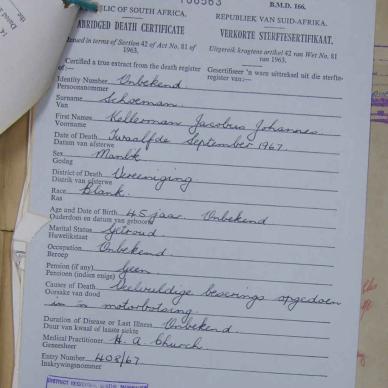 106563
B.M.D. 166.
LIC OF SOUTH AFRICA.
REPUBLIEK VAN SUID-AFRIKA.
ABRIDGED DEATH CERTIFICATE
VERKORTE STERFTESERTIFIKAAT.
Issued in terms of Section 42 of Act No. 81 of 1963.
Uitgereik kragtens artikel 42 van Wet No. 81 van 1963.
Certified a true extract from the death register of:—
Gesertifiseer 'n ware uittreksel uit die sterfteregister van:—
Identity Number Onbekend
Persoonsnommer
Surname Schoeman.
Van
First Names Kellerman Jacobus Johannes
Voorname
Date of Death Twaalfde September 1967.
Datum van afsterwe
Sex Manlik
Geslag
District of Death Vereeniging
Distrik van afsterwe
Race Blank.
Ras
Age and Date of Birth 45 jaar. Onbekend
Ouderdom en datum van geboorte
Marital Status Getroud
Huwelikstaat
Occupation Onbekend
Beroep
Pension (if any) Geen
Pensioen (indien enige)
Causes of Death Veelvuldige beserings opgedoen
Oorsake van dood
in 'n motorbotsing.
Duration of Disease or Last Illness Onbekend
Duur van kwaal of laaste siekte
Medical Practitioner H. A. Church.
Geneesheer
Entry Number 408/67
Inskrywingsnommer